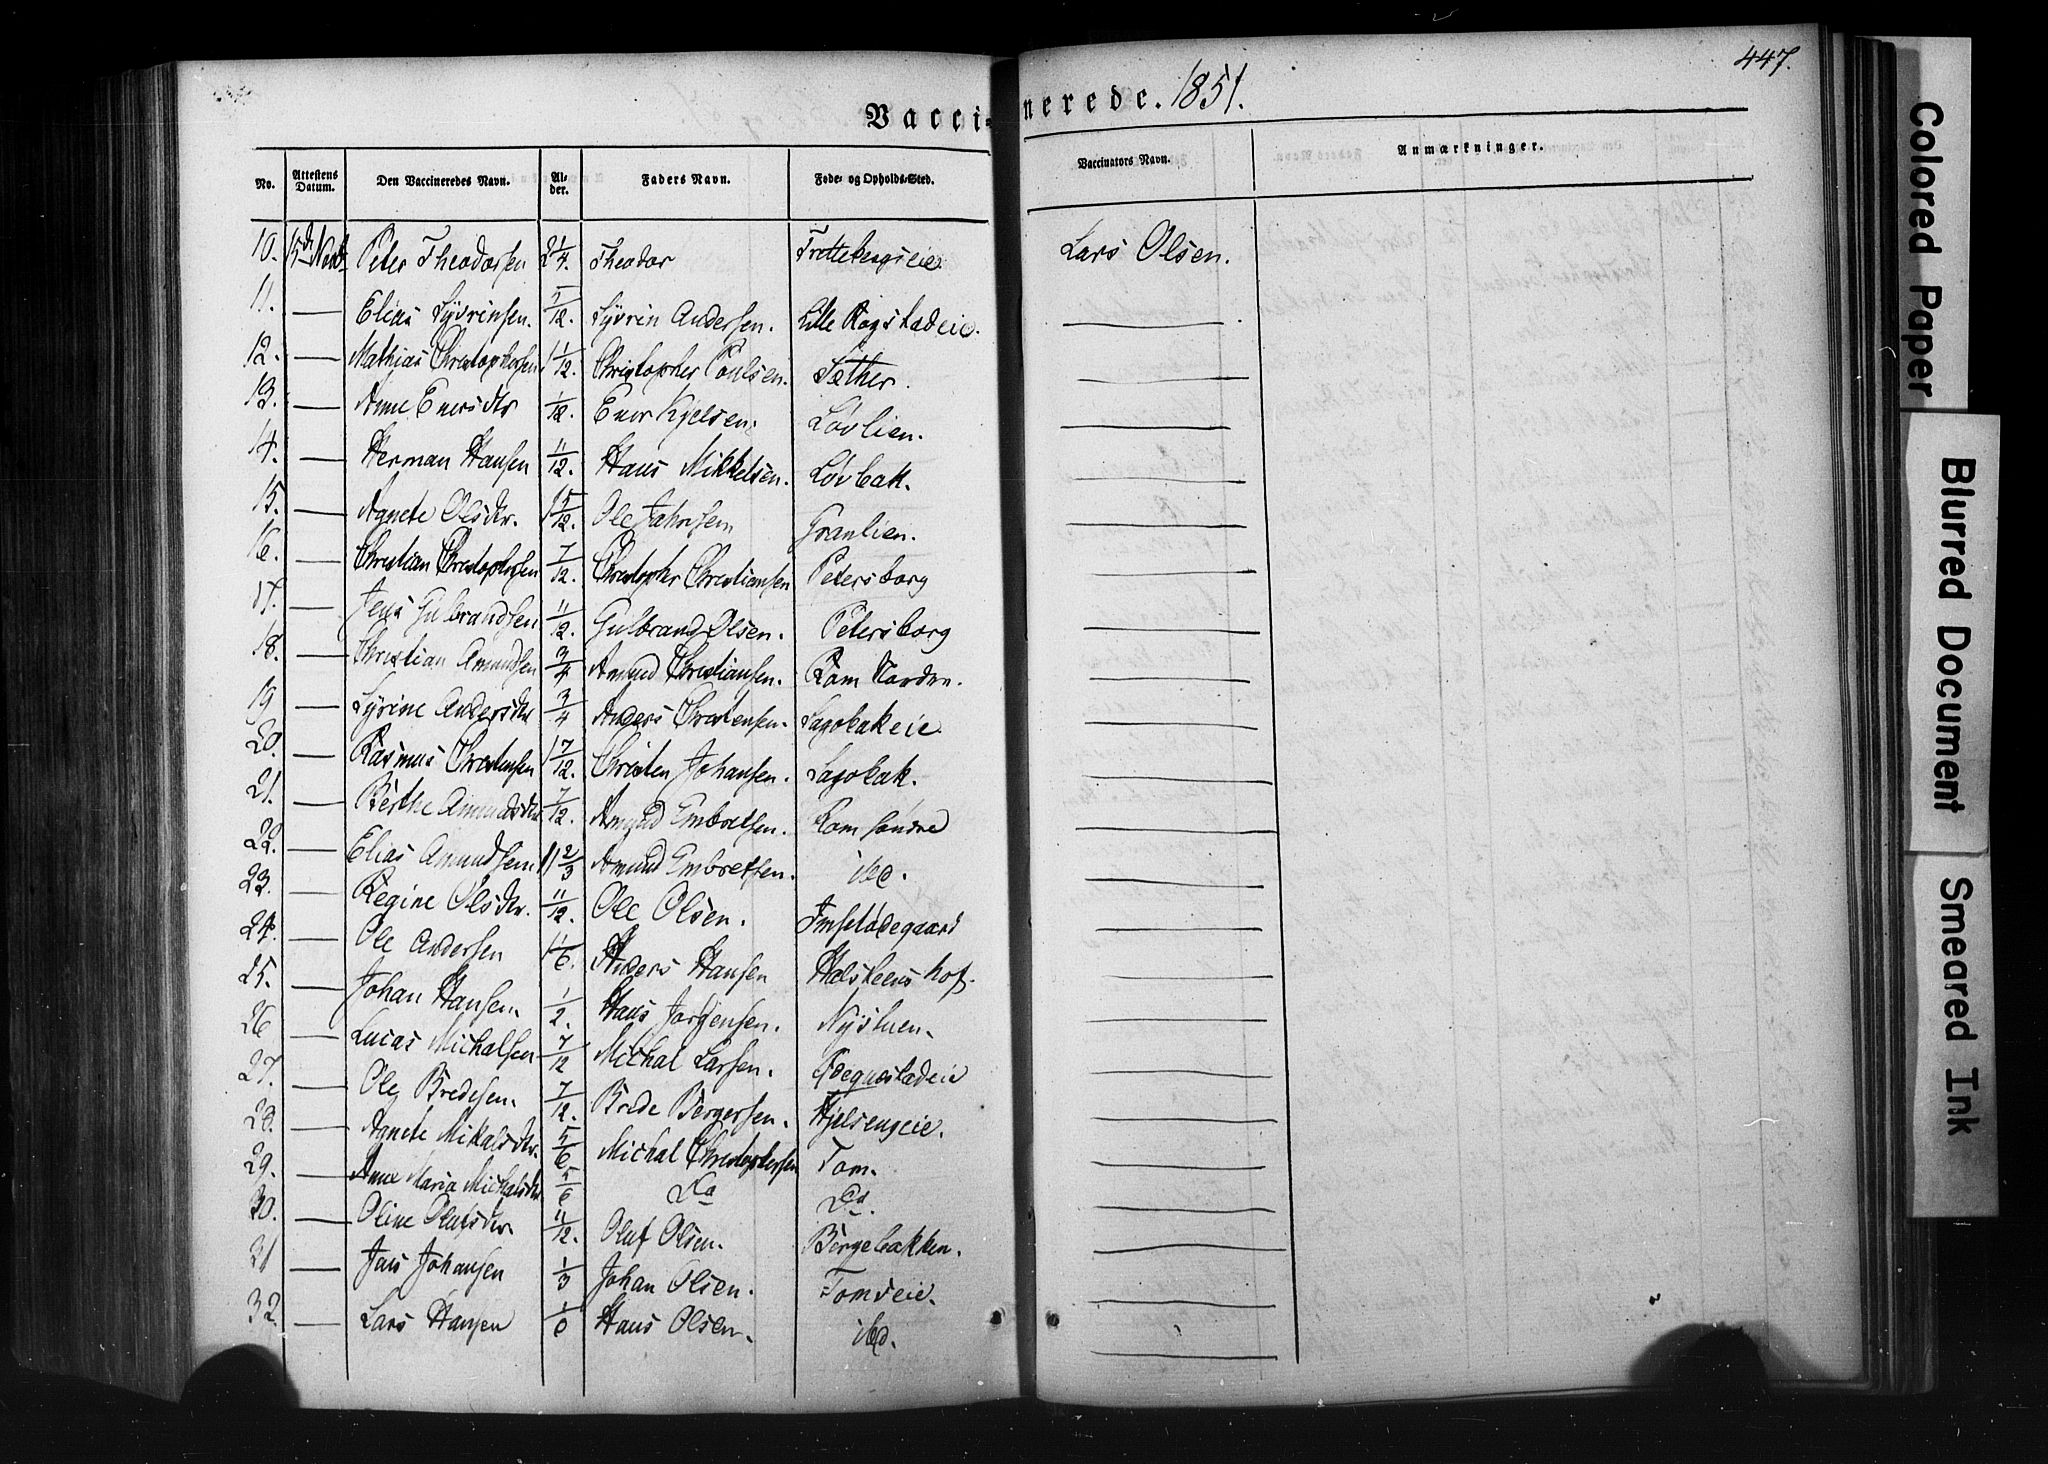 447.
Vaccinerede. 1851.
No. Attestens Datum. Den Vaccineredes Navn. Alder. Faders Navn. Føde- og Opholds-Sted. Vaccinators Navn. Anmærkninger.
10. 15de Peter Theodorsen 2 1/4. Theodor Lars Olsen.
11. — Elias Syvrinsen. 5/12. Syvrin Andersen. Lille Rogstadeie. —
12. — Mathias Christophersen 1 1/12. Christopher Poulsen. Sæther. —
13. — Anne Enersdtr 1/12. Ener Kjelsen. Løvlien. —
14. — Herman Hansen 11/12. Hans Mikkelsen. Løvbak. —
15. — Agnete Olsdtr. 1 5/12. Ole Granlien. —
16. — Christian Christophersen 7/12. Christopher Christiansen Petersborg —
17. — Jens Gulbrandsen 11/12. Gulbrand Olsen. Petersborg —
18. — Christian Amundsen 3/4 Amund Christiansen. Ram Nordre. —
19 — Syrine Andersdtr 3/4 Anders Christensen. Sagbakeie —
20. — Rasmus Christensen 1 7/12. Christen Johansen. Sagbak. —
21. — Berthe Amundsdtr 7/12. Amund Embretsen. Ram søndre —
22. — Elias Amundsen 11 2/3 Amund Embretsen. ibd. —
23. — Regine Olsdtr. 11/12. Ole Olsen. —
24. — Ole Andersen 1 1/6. Anders Hansen Halsteenshof. —
25. — Johan Hansen. 1/2. Hans Jørgensen. Nystuen. —
26 — Lucas Michalsen 7/12 Michal Larsen. —
27. — Ole Bredesen. 7/12. Brede Bergersen. Hjelsengeie. —
28. — Agnete Mikalsdtr. 5/6 Michal Christophersen Tom. —
29. — Anne Maria Michalsdtr 5/6 Do Do. —
30. — Oline Olufsdtr. 11/12. Oluf Olsen. Bergebakken. —
31 — Jens Johansen 1/3 Johan Olsen. Tomseie. —
32. — Lars Hansen 1/6 Hans Olsen. ibd. —
Colored Paper
Blurred Document
Smeared Ink